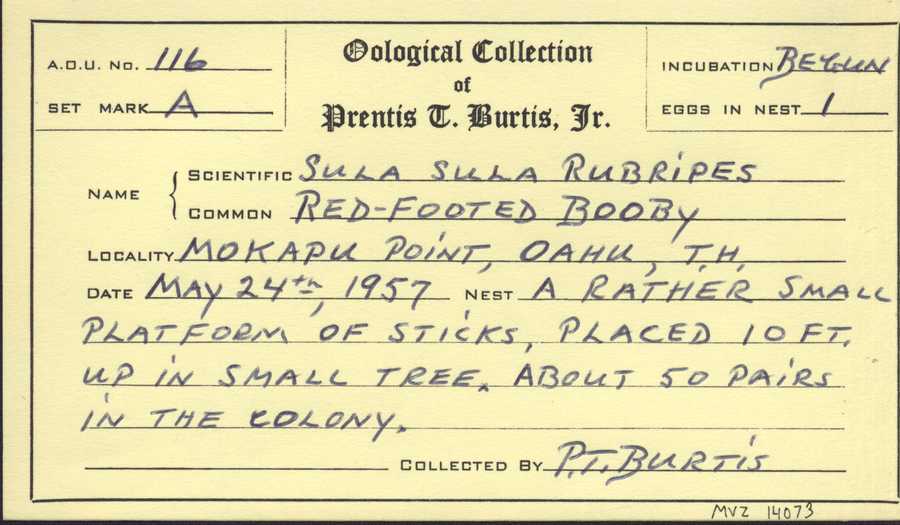 A.O.U. No. 116
Oological Collection
of
Prentis T. Burtis, Jr.
INCUBATION BEGUN
SET MARK A
EGGS IN NEST 1
NAME { SCIENTIFIC SULA SULA RUBRIPES
COMMON RED-FOOTED BOOBY
LOCALITY MOKAPU POINT, OAHU, T.H.
DATE MAY 24th, 1957 NEST A RATHER SMALL
PLATFORM OF STICKS, PLACED 10 FT.
UP IN SMALL TREE. ABOUT 50 PAIRS
IN THE COLONY.
COLLECTED BY P.T. BURTIS
MVZ 14073